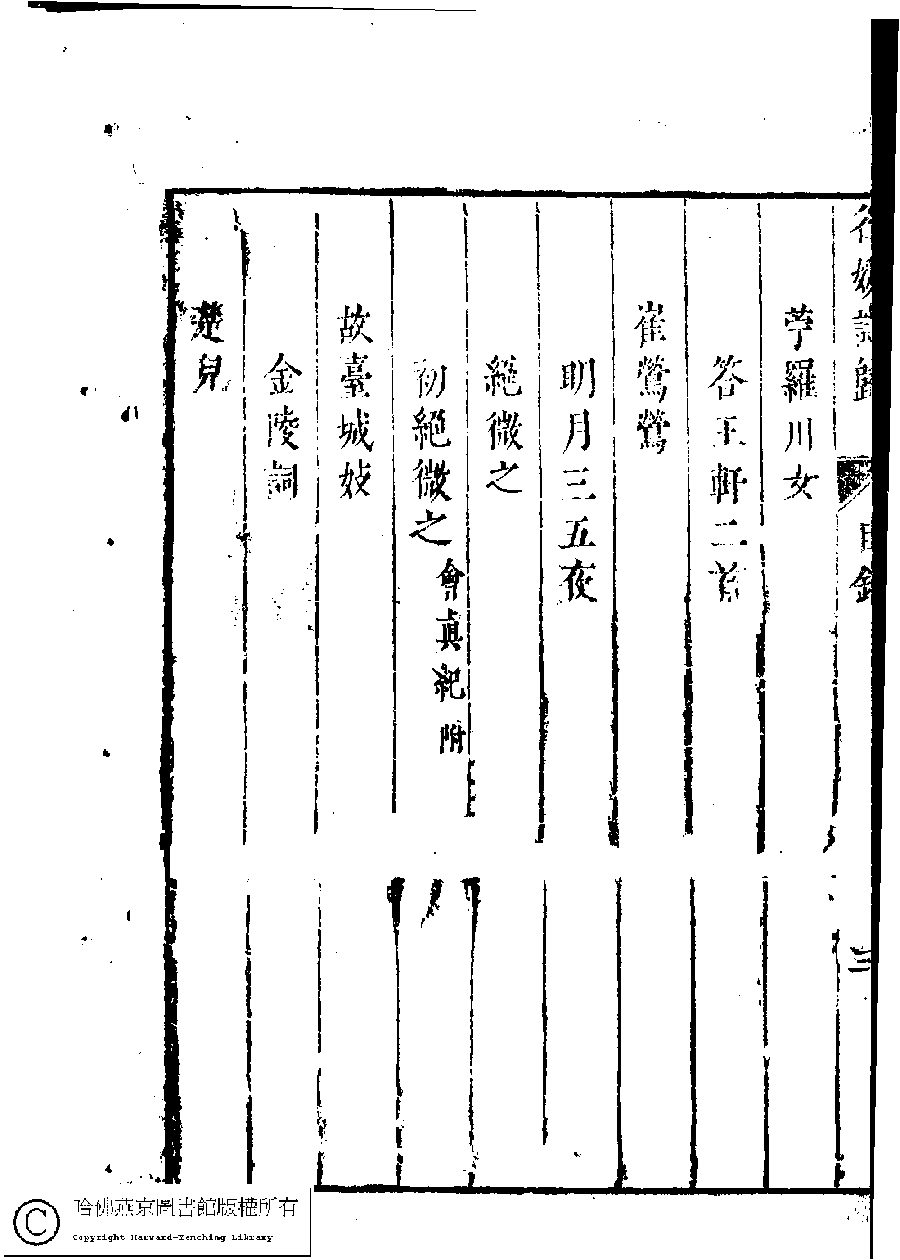 名媛詩歸 目錄 三
苧羅川女
答王軒二首
崔鶯鶯
明月三五夜
絕微之
初絕微之 會真紀附
故臺城妓
金陵詞
楚兒
哈佛燕京圖書館版權所有
Copyright Harvard-Yenching Library